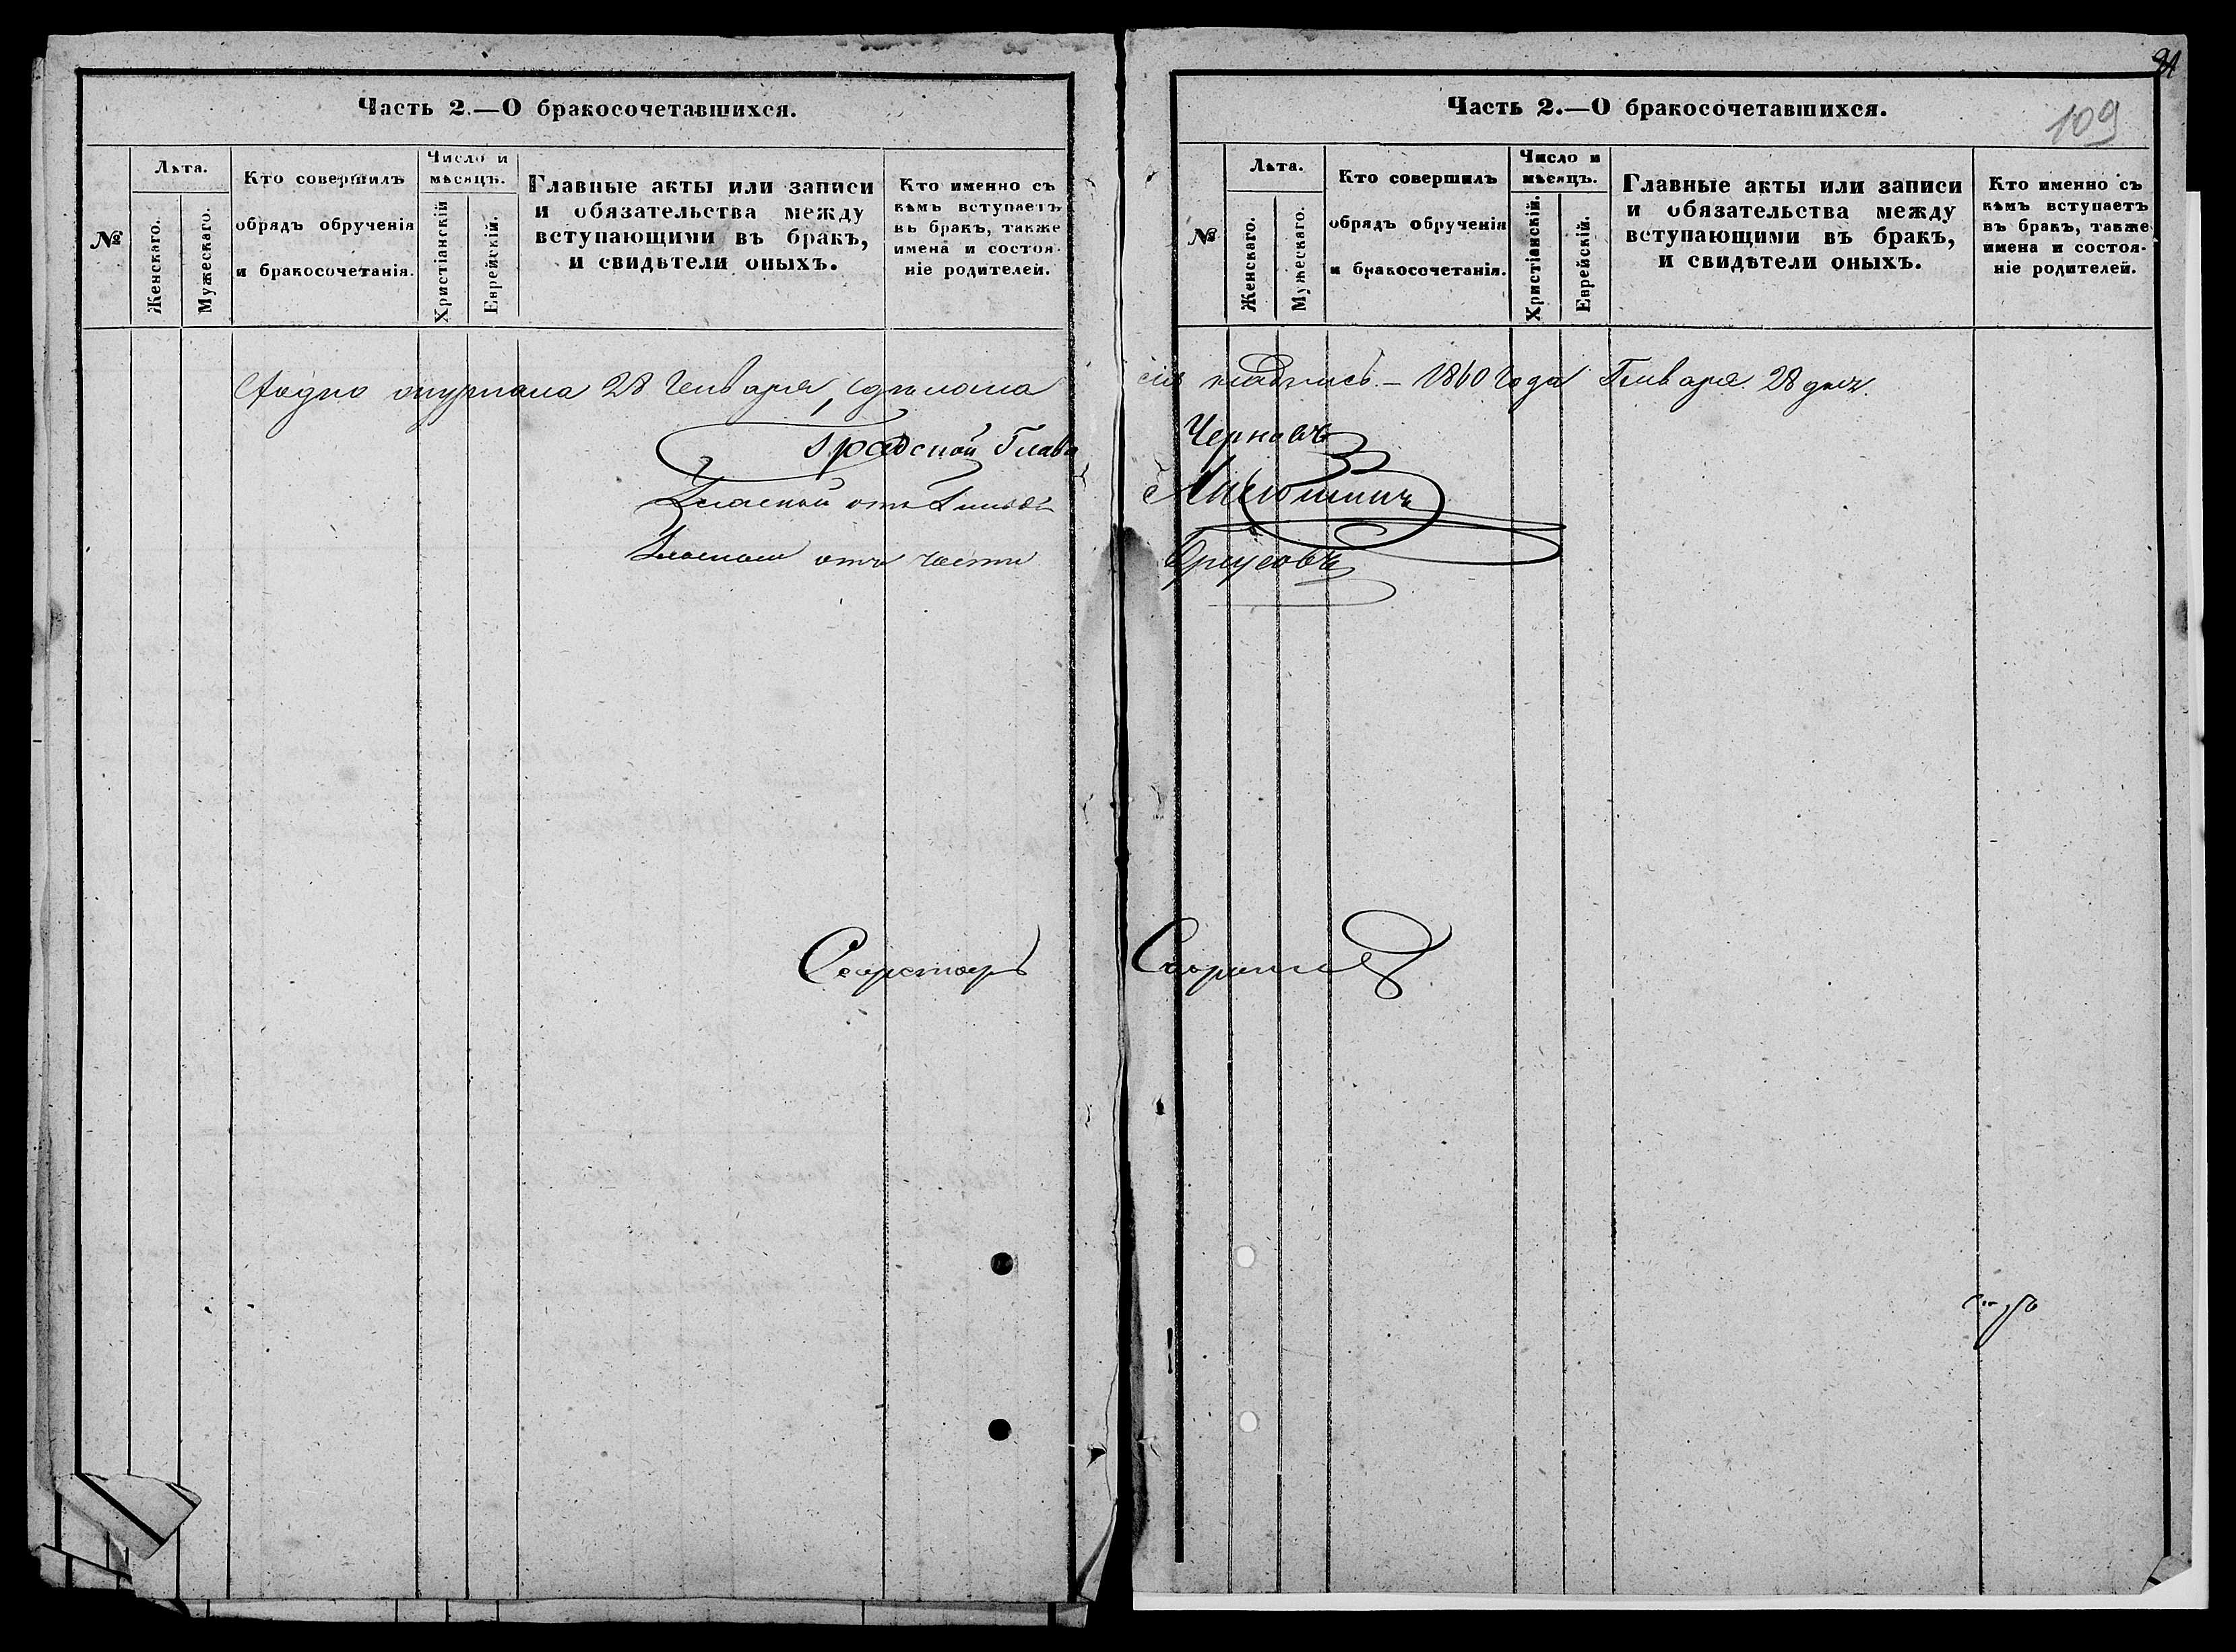 Часть 2.—О бракосочетавшихся.
№
Лѣта.
Женскаго.
Мужескаго.
Кто совершилъ
обрядъ обрученія
и бракосочетанія.
Число и
мѣсяцъ.
Христіанскій
Еврейскій.
Главные акты или записи
и обязательства между
вступающими въ бракъ,
и свидѣтели оныхъ.
Кто именно съ
кѣмъ вступаетъ
въ бракъ, также
имена и состоя-
ніе родителей.
28 Генваря, сдѣлана
Градской Глава
Гласный отъ
Гласный отъ части
Секретарь
94
109
Часть 2.—О бракосочетавшихся.
№
Лѣта.
Женскаго.
Мужескаго.
Кто совершилъ
обрядъ обрученія
и бракосочетанія.
Число и
мѣсяцъ.
Христіанскій.
Еврейскій.
Главные акты или записи
и обязательства между
вступающими въ бракъ,
и свидѣтели оныхъ.
Кто именно съ
кѣмъ вступаетъ
въ бракъ, также
имена и состоя-
ніе родителей.
сія надпись.— 1860 года Генваря 28 дня.
Черновъ